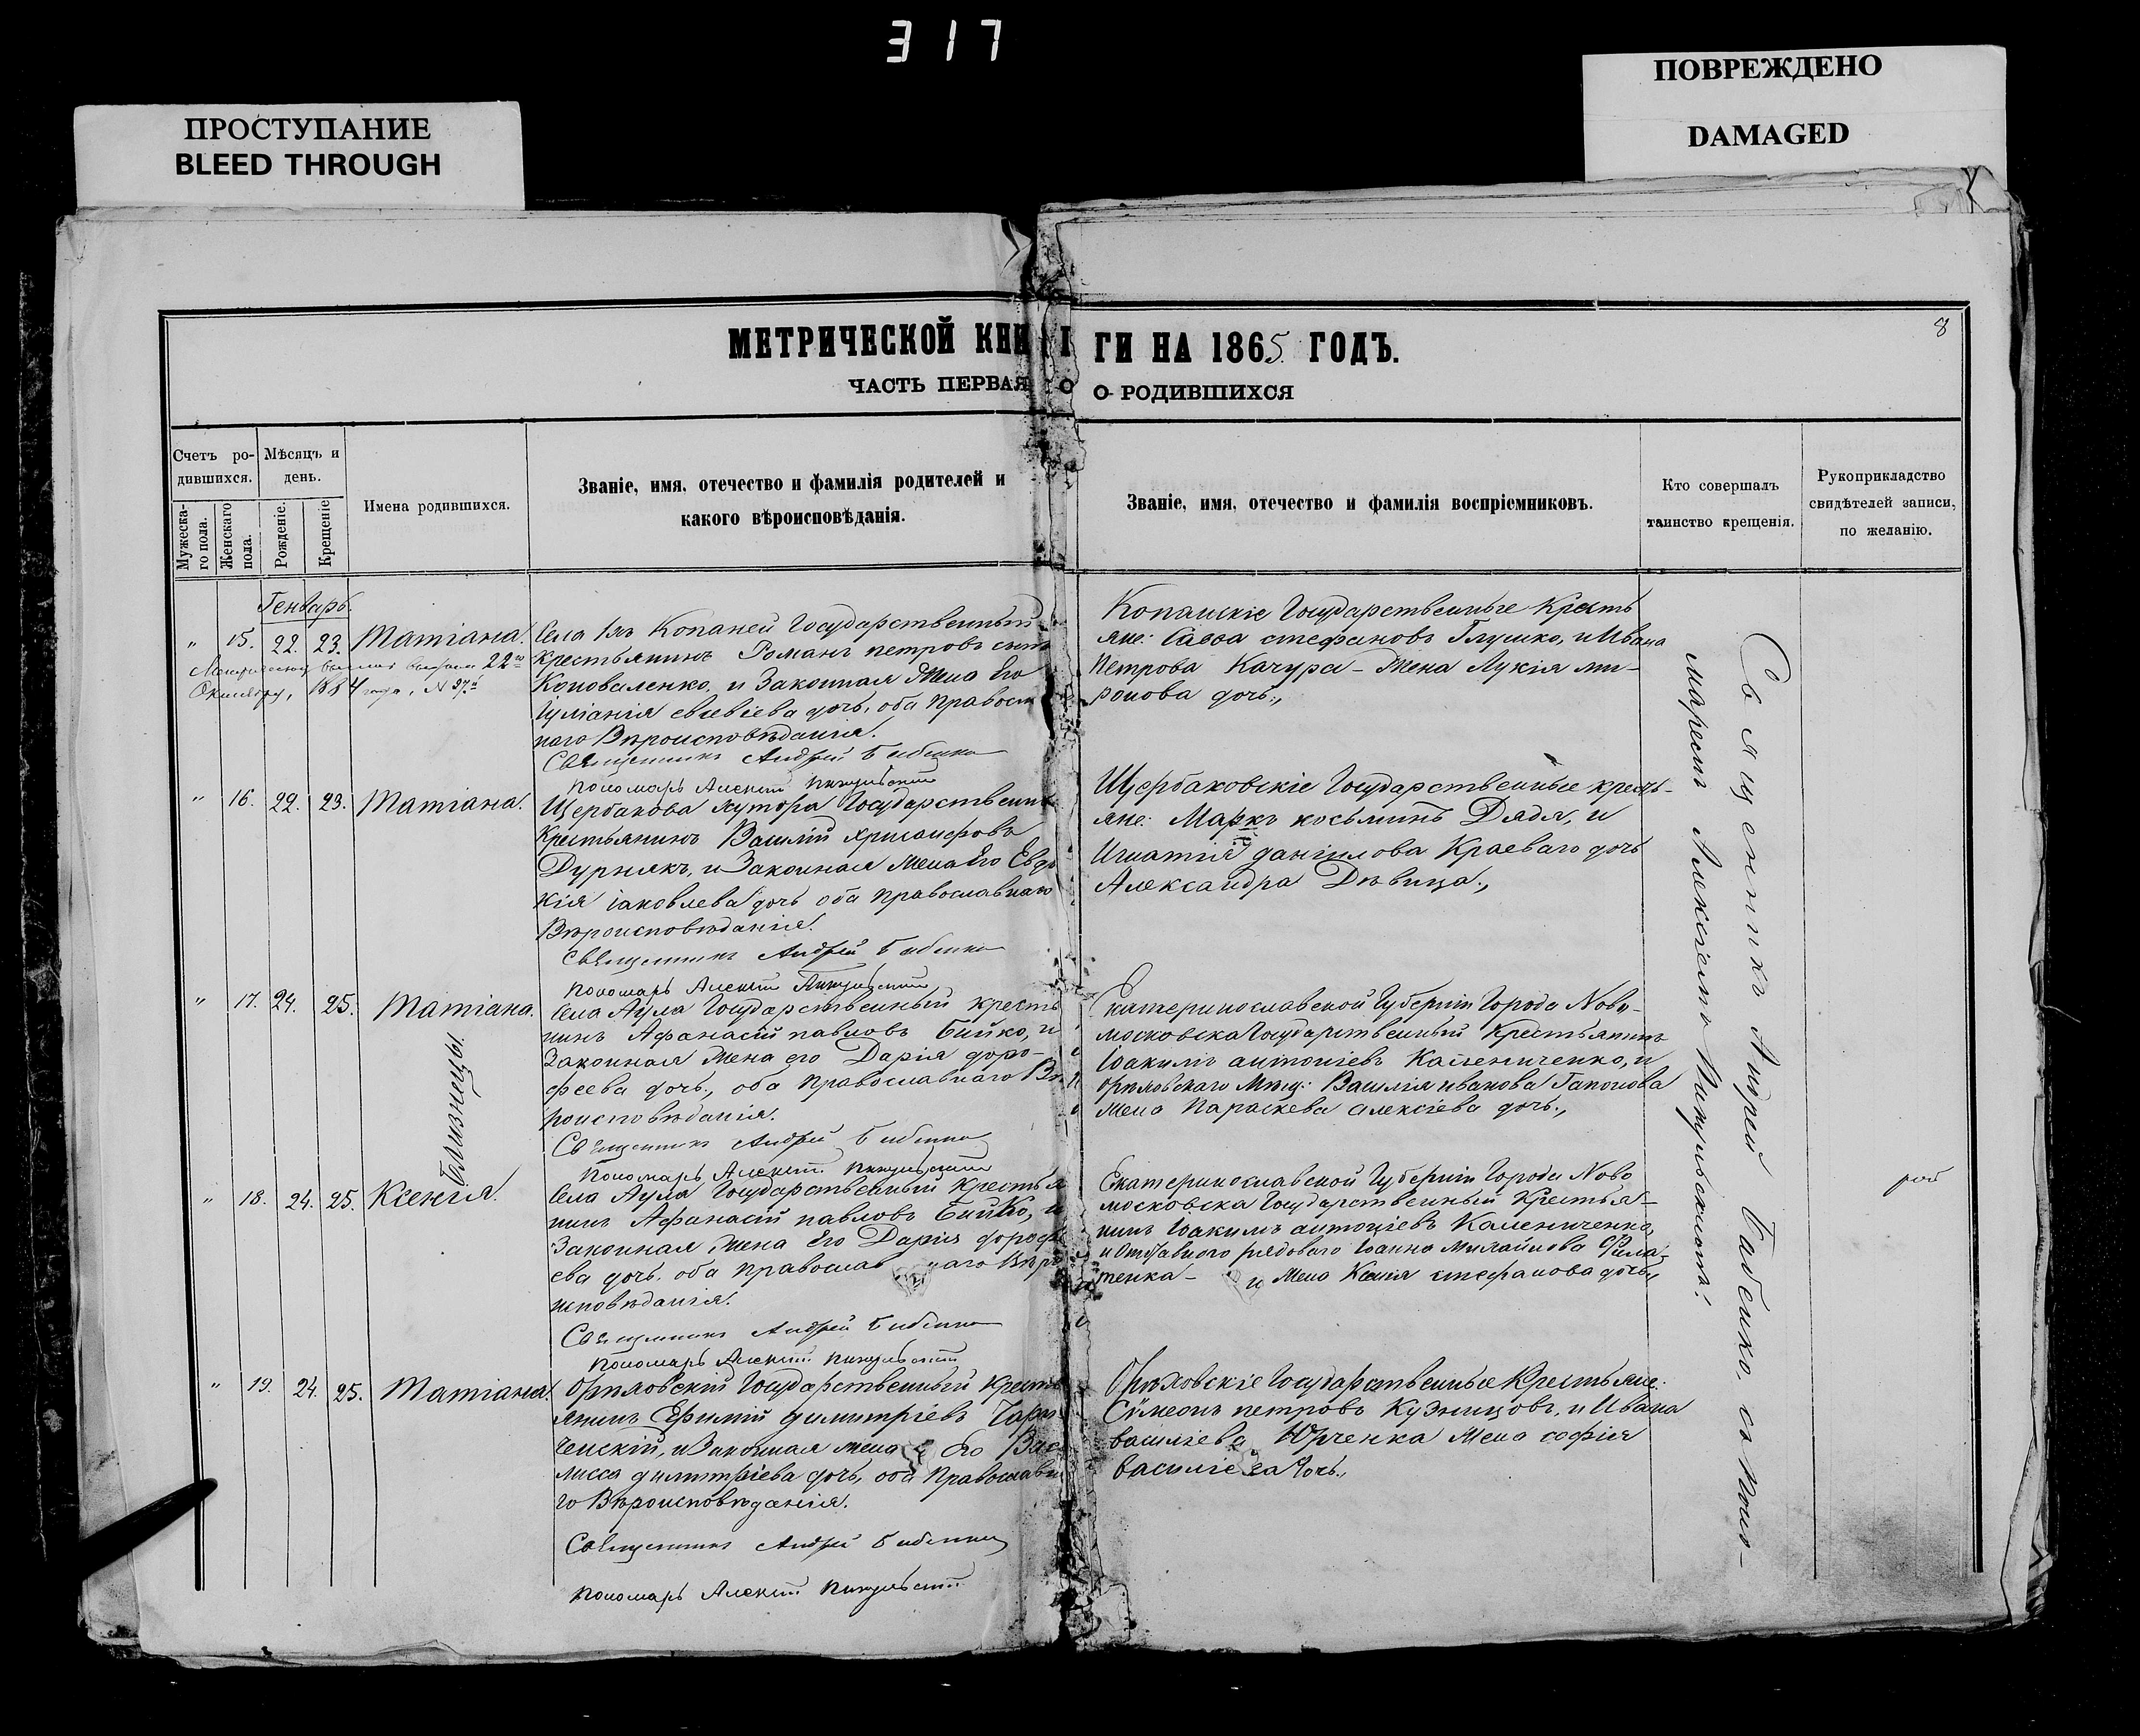 317
ПРОСТУПАНИЕ
BLEED THROUGH
ПОВРЕЖДЕНО
DAMAGED
8
МЕТРИЧЕСКОЙ КНИ ГИ НА 1865 ГОДЪ.
ЧАСТЬ ПЕРВАЯ О О РОДИВШИХСЯ
Счетъ ро-
дившихся.
Мѣсяцъ и
день.
Мужеска-
го пола.
Женскаго
пола.
Рожденіе.
Крещеніе
Имена родившихся.
Званіе, имя, отечество и фамилія родителей и
какого вѣроисповѣданія.
Званіе, имя, отечество и фамилія воспріемниковъ.
Кто совершалъ
таинство крещенія.
Рукоприкладство
свидѣтелей записи,
по желанію.
Генварь.
" 15. 22. 23. Татіана.
22го
Октября, 1884 года, №
Села Копаней Государственный
крестьянинъ Романъ петровъ сынъ
Коноваленко, и Законная Жена Его
дочь, оба Правосл
наго Вѣроисповѣданія.
Священникъ Андрей Бабенко
Пономарь Алексій Пикульскій
Копанскіе Государственные Кресть
яне: Савва стефановъ Глушко, и Ивана
Петрова Качура - Жена Лукія ми-
ронова дочь.,
" 16. 22. 23. Татіана.
Щербакова хутора Государственный
Крестьянинъ Василій хрисанфовъ
Дурнякъ, и Законная Жена Его Евдо
кія іаковлева дочь оба православнаго
Вѣроисповѣданія.
Священникъ Андрей Бабенко
Пономарь Алексій Пикульскій
Щербаковскіе Государственные кресть-
яне: Маркъ косьминъ Дядя, и
Игнатія даніилова Краеваго дочь
Александра Дѣвица.,
" 17. 24. 25. Татіана.
Близнецы.
Села Аула Государственный кресть
нинъ Афанасій павловъ Бийко, и
Законная Жена его Дарія доро-
феева дочь., оба Православнаго Вѣ
роисповѣданія.
Священникъ Андрей Бабенко
Пономарь Алексій Пикульскій
Екатеринославской Губерніи Города Ново-
московска Государственный Крестьянинъ
Іоакимъ антоніевъ Калениченко, и
орѣховскаго Мѣщ: Василія иванова Гапонова
Жена Параскева алексіева дочь.,
" 18. 24. 25. Ксенія.
Села Аула Государственный Крестья
нинъ Афанасій павловъ Бийко, и
Законная Жена Его Дарія дорофе
ева дочь. оба православ наго Вѣро
исповѣданія.
Священникъ Андрей Бабенко
Пономарь Алексій Пикульскій
Екатеринославской Губерніи Города Ново
московска Государственный Крестья-
нинъ Іоакимъ антоніевъ Калениченко,
и Отставного рядоваго Іоанна Михайлова Фила-
тенка - Жена Ксенія стефанова дочь.,
" 19. 24. 25. Татіана.
Орѣховскій Государственный Кресть
янинъ Ефимій димитріевъ
ченскій, и Законная жена Его Вас
лисса димитріева дочь, оба Православна
го Вѣроисповѣданія.
Священникъ Андрей Бабенко
Пономарь Алексій Пикульскій
Орѣховскіе Государственные Крестьяне:
Сѵмеонъ петровъ Кузнецовъ, и Ивана
василіева Юрченка Жена софія
василіева дочь.,
Священникъ Андрей Бабенко, съ Поно-
маремъ Алексіемъ Пикульскимъ.